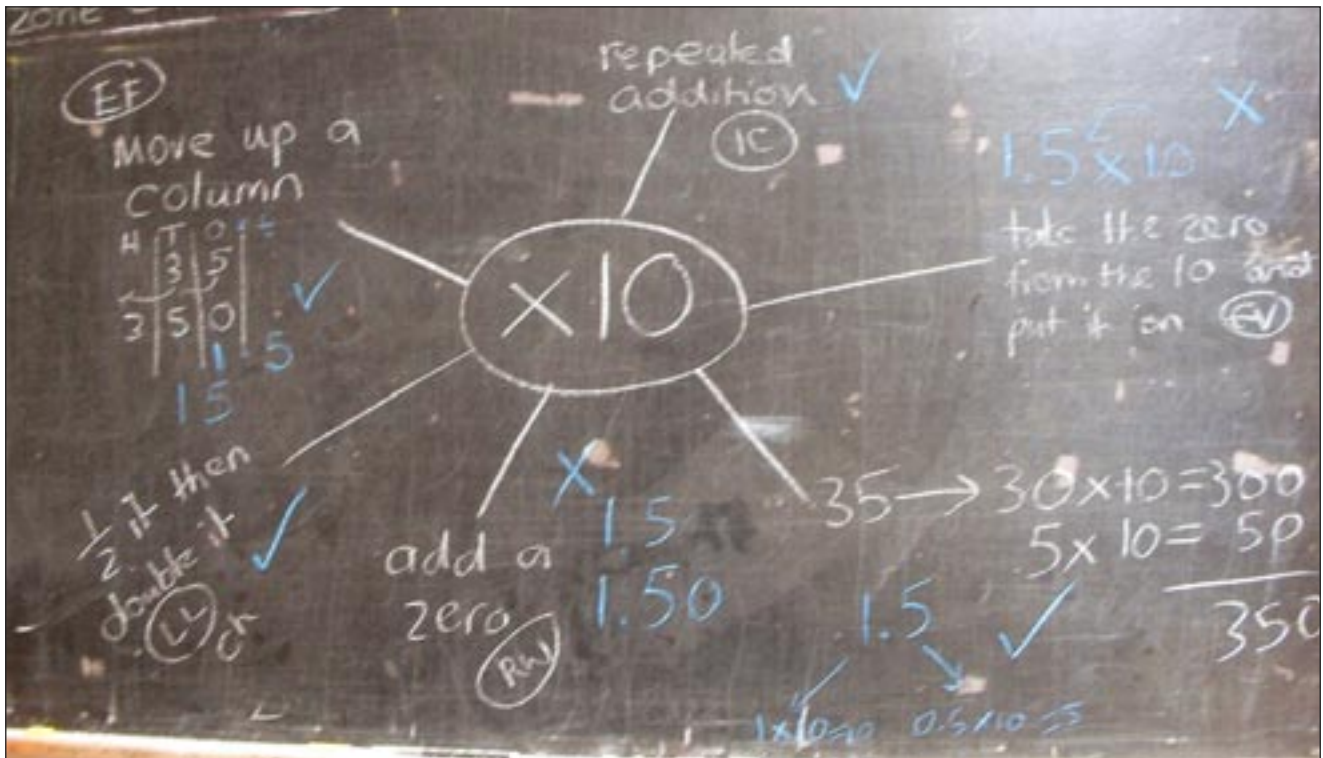 zone
EF
Move up a
column
H T O t
3 5
3 5 0
1 5
1 5
repeated
addition ✓
IC
X
1.5 x 10
take the zero
from the 10 and
put it on EV
×10
½ it then
double it ✓
LL or
add a
zero
RW
X
1.5
1.50
35 → 30x10=300
5x10= 50
350
1.5 ✓
1x10=10 0.5x10=5